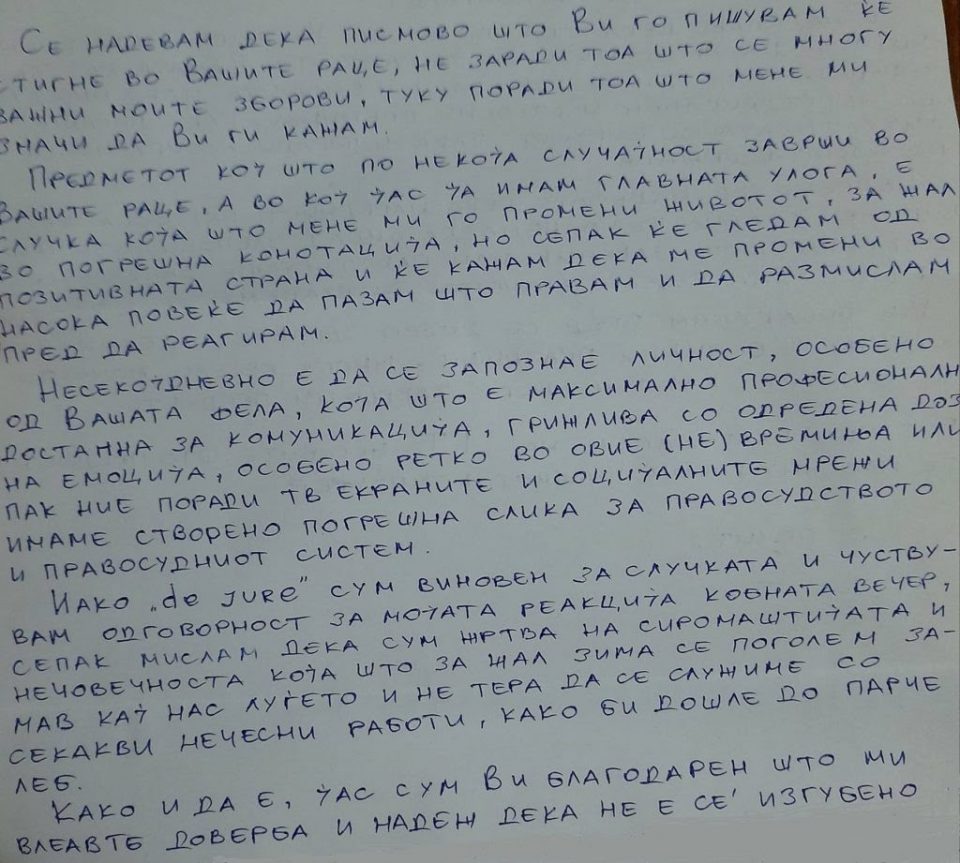 Се надевам дека писмово што Ви го пишувам ќе
стигне во Вашите раце, не заради тоа што се многу
важни моите зборови, туку поради тоа што мене ми
значи да Ви ги кажам.
Предметот кој што по некоја случајност заврши во
Вашите раце, а во кој јас ја имам главната улога, е
случка која што мене ми го промени животот, за жал
во погрешна конотација, но сепак ќе гледам од
позитивната страна и ќе кажам дека ме промени во
насока повеќе да пазам што правам и да размислам
пред да реагирам.
Несекојдневно е да се запознае личност, особено
од Вашата фела, која што е максимално професионалн
достапна за комуникација, грижлива со одредена доз
на емоција, особено ретко во овие (не) времиња или
пак ние поради тв екраните и социјалните мрежи
имаме створено погрешна слика за правосудството
и правосудниот систем.
Иако „de jure" сум виновен за случката и чуству-
вам одговорност за мојата реакција кобната вечер,
сепак мислам дека сум жртва на сиромаштијата и
нечовечноста која што за жал зима се поголем за-
мав кај нас луѓето и не тера да се служиме со
секакви нечесни работи, како би дошле до парче
леб.
Како и да е, јас сум Ви благодарен што ми
влеавте доверба и надеж дека не е се' изгубено